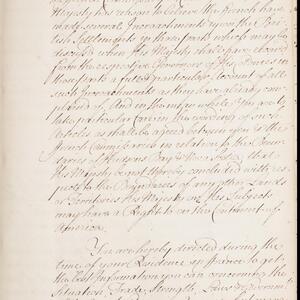 Majesty has reason to believe the French have
made several Incroachments upon the Bri-
tish Settlements in those parts which may be
discovered when His Majesty shall have received
from the respective Governors of His Colonies in
those parts a full & particular Account of all
such Incroachments as they have already com-
plained of. And in the mean while You are to
take particular Care in the wording of such
Articles as shall be agreed between you & the
French Commissaries in relation to the Boun-
daries of Hudsons Bay & Nova Scotia, that
His Majesty be not thereby concluded with res-
pect to the Boundaries of any other Lands
or Territories His Majesty or His Subjects
may have a Right to on the Continent of
America.
You are hereby directed during the
time of your Residence in France to get
the best Information you can concerning the
Situation, Trade, Strength, Laws & Government